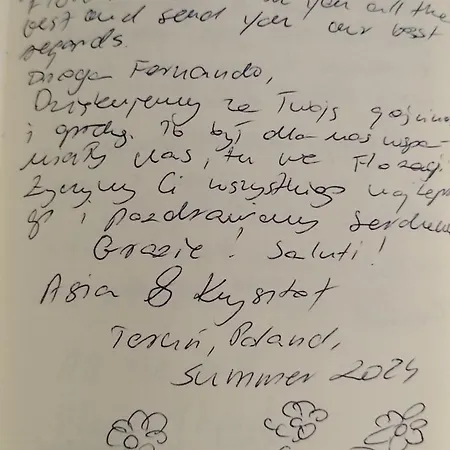 you all the
best and send you our best
regards.
Droga Fernando,
Dziękujemy za Twoją gościn
i
To był dla nas wspa-
niały czas, tu we
Życzymy Ci wszystkiego najlep
i pozdrawiamy serdecz
Grazie! Saluti!
Asia & Krysztof
Poland,
Summer 2024